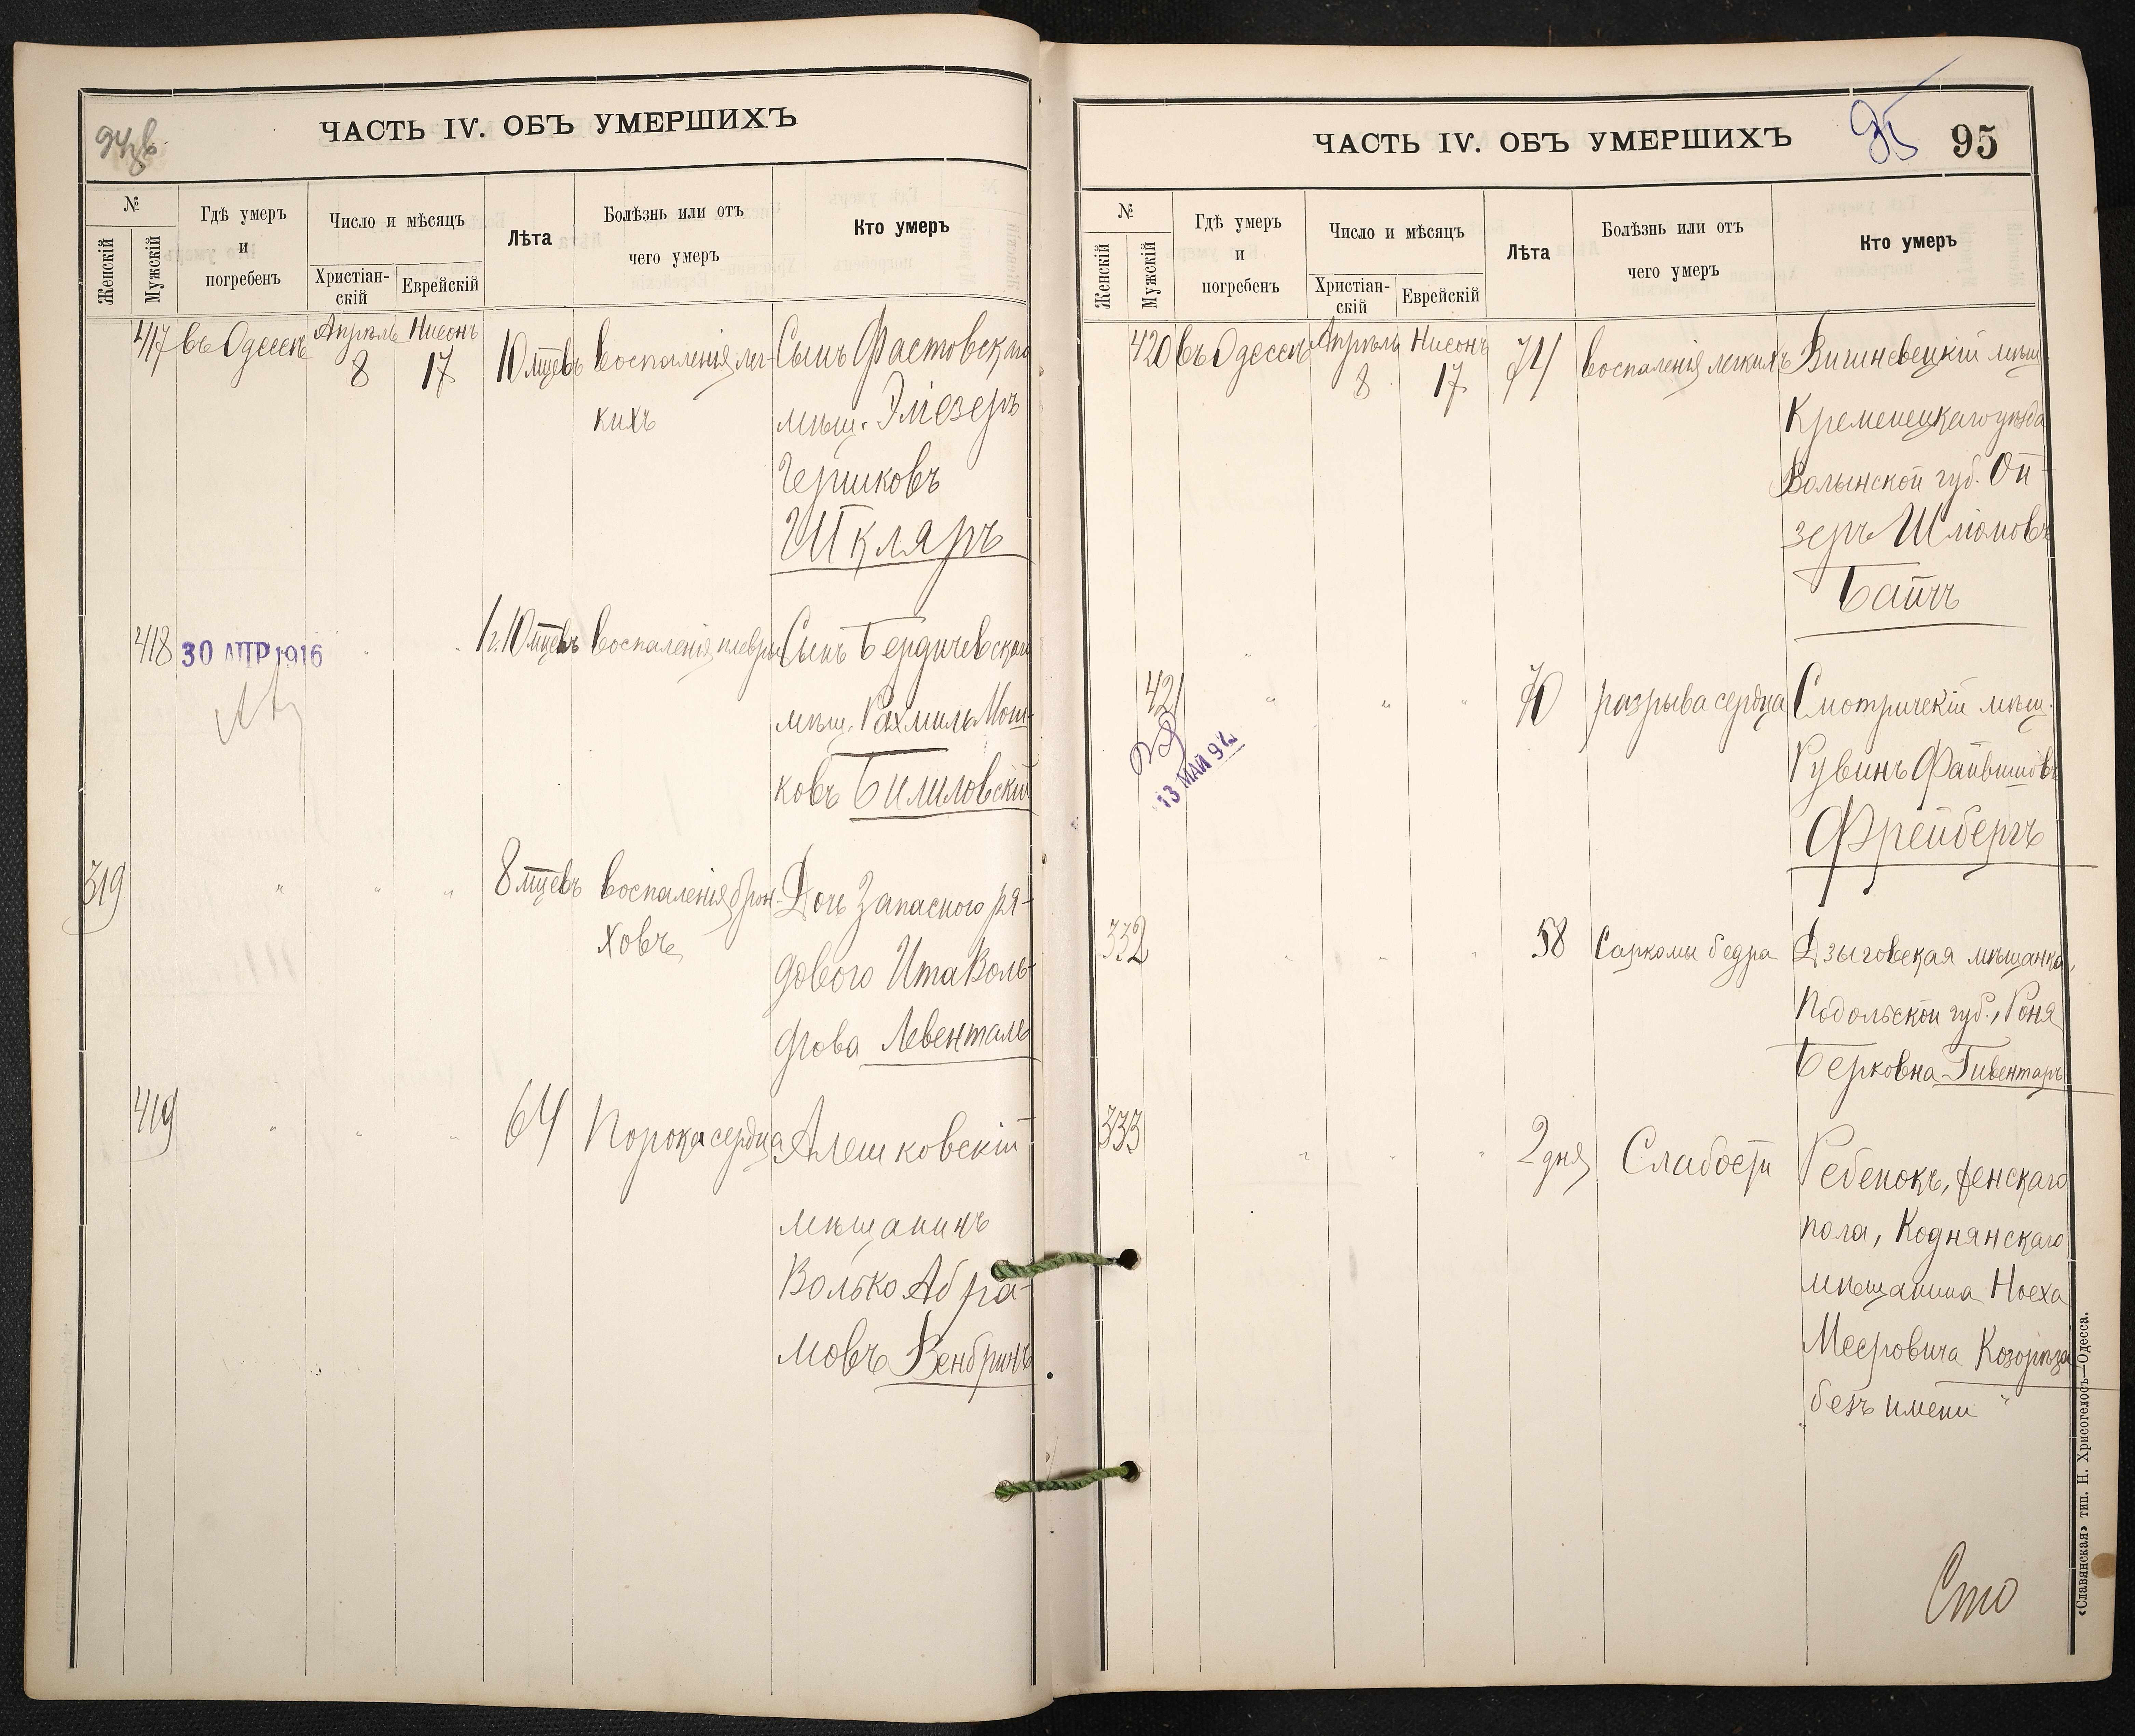 94 об.
ЧАСТЬ IV. ОБЪ УМЕРШИХЪ
№
Женскій
Мужскій
Гдѣ умеръ
и
погребенъ
Число и мѣсяцъ
Христіан-
скій
Еврейскій
Лѣта
Болѣзнь или отъ
чего умеръ
Кто умеръ
417 въ Одессѣ Апрѣль 8 Нисонъ 17 10 мцевъ воспаленія лег-
кихъ
Сынъ Фастовскаго
мѣщ. Эліезеръ
Гершковъ
Шкляръ
418 30 АПР 1916 " " 1 г. 10 мцевъ воспаленія плевры
Сынъ Бердичевскаго
мѣщ. Рахмиль Мош-
ковъ Билиловскій
319 " " " 8 мцевъ воспаленія брон-
ховъ
Дочь Запаснаго ря-
дового Ита Воль-
фова Левенталь
419 " " " 64 Порока сердца
Алешковскій
мѣщанинъ
Волько Абра-
мовъ Венбринъ
ЧАСТЬ IV. ОБЪ УМЕРШИХЪ
95
95
№
Женскій
Мужскій
Гдѣ умеръ
и
погребенъ
Число и мѣсяцъ
Христіан-
скій
Еврейскій
Лѣта
Болѣзнь или отъ
чего умеръ
Кто умеръ
420 въ Одессѣ Апрѣль 8 Нисонъ 17 74 воспаленія легкихъ
Вишневецкій мѣщ.
Кременецкаго уѣзда
Волынской губ. Ой-
зеръ Шліомовъ
Байчъ
421 " " " 70 разрыва сердца
13 МАЙ 9
Смотричскій мѣщ.
Рувинъ Файвишовъ
Фрейбергъ
332 " " " 58 Саркомы бедра
Дзыговская мѣщанка,
Подольской губ., Роня
Берковна Гивентаръ
333 " " " 2 дня Слабости
Ребенокъ, женскаго
пола, Коднянскаго
мѣщанина Ноеха
Мееровича Козорѣза
безъ имени "
Сто
«Славянская» тип. Н. Хрисогелосъ—Одесса.